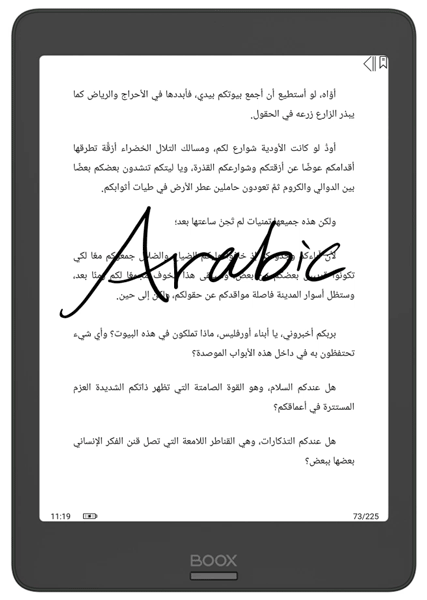 أوّاه، لو أستطيع أن أجمع بيوتكم بيدي، فأبددها في الأحراج والرياض كما
يبذر الزارع زرعه في الحقول.
أودُّ لو كانت الأودية شوارع لكم، ومسالك التلال الخضراء أزقَّة تطرقها
أقدامكم عوضًا عن أزقتكم وشوارعكم القذرة، ويا ليتكم تنشدون بعضكم بعضًا
بين الدوالي والكروم ثمَّ تعودون حاملين عطر الأرض في طيات أثوابكم.
ولكن هذه جميعها تمنيات لم تَحن ساعتها بعد؛
لأن آباءكم والضلال جمعوكم معًا لكي
تكونوا بعضكم هذا الخوف لكم بعد،
وستظل أسوار المدينة فاصلة مواقدكم عن حقولكم، ولكن إلى حين.
Arabic
بربكم أخبروني، يا أبناء أورفليس، ماذا تملكون في هذه البيوت؟ وأي شيء
تحتفظون به في داخل هذه الأبواب الموصدة؟
هل عندكم السلام، وهو القوة الصامتة التي تظهر ذاتكم الشديدة العزم
المستترة في أعماقكم؟
هل عندكم التذكارات، وهي القناطر اللامعة التي تصل قنن الفكر الإنساني
بعضها ببعض؟
11:19 73/225
BOOX